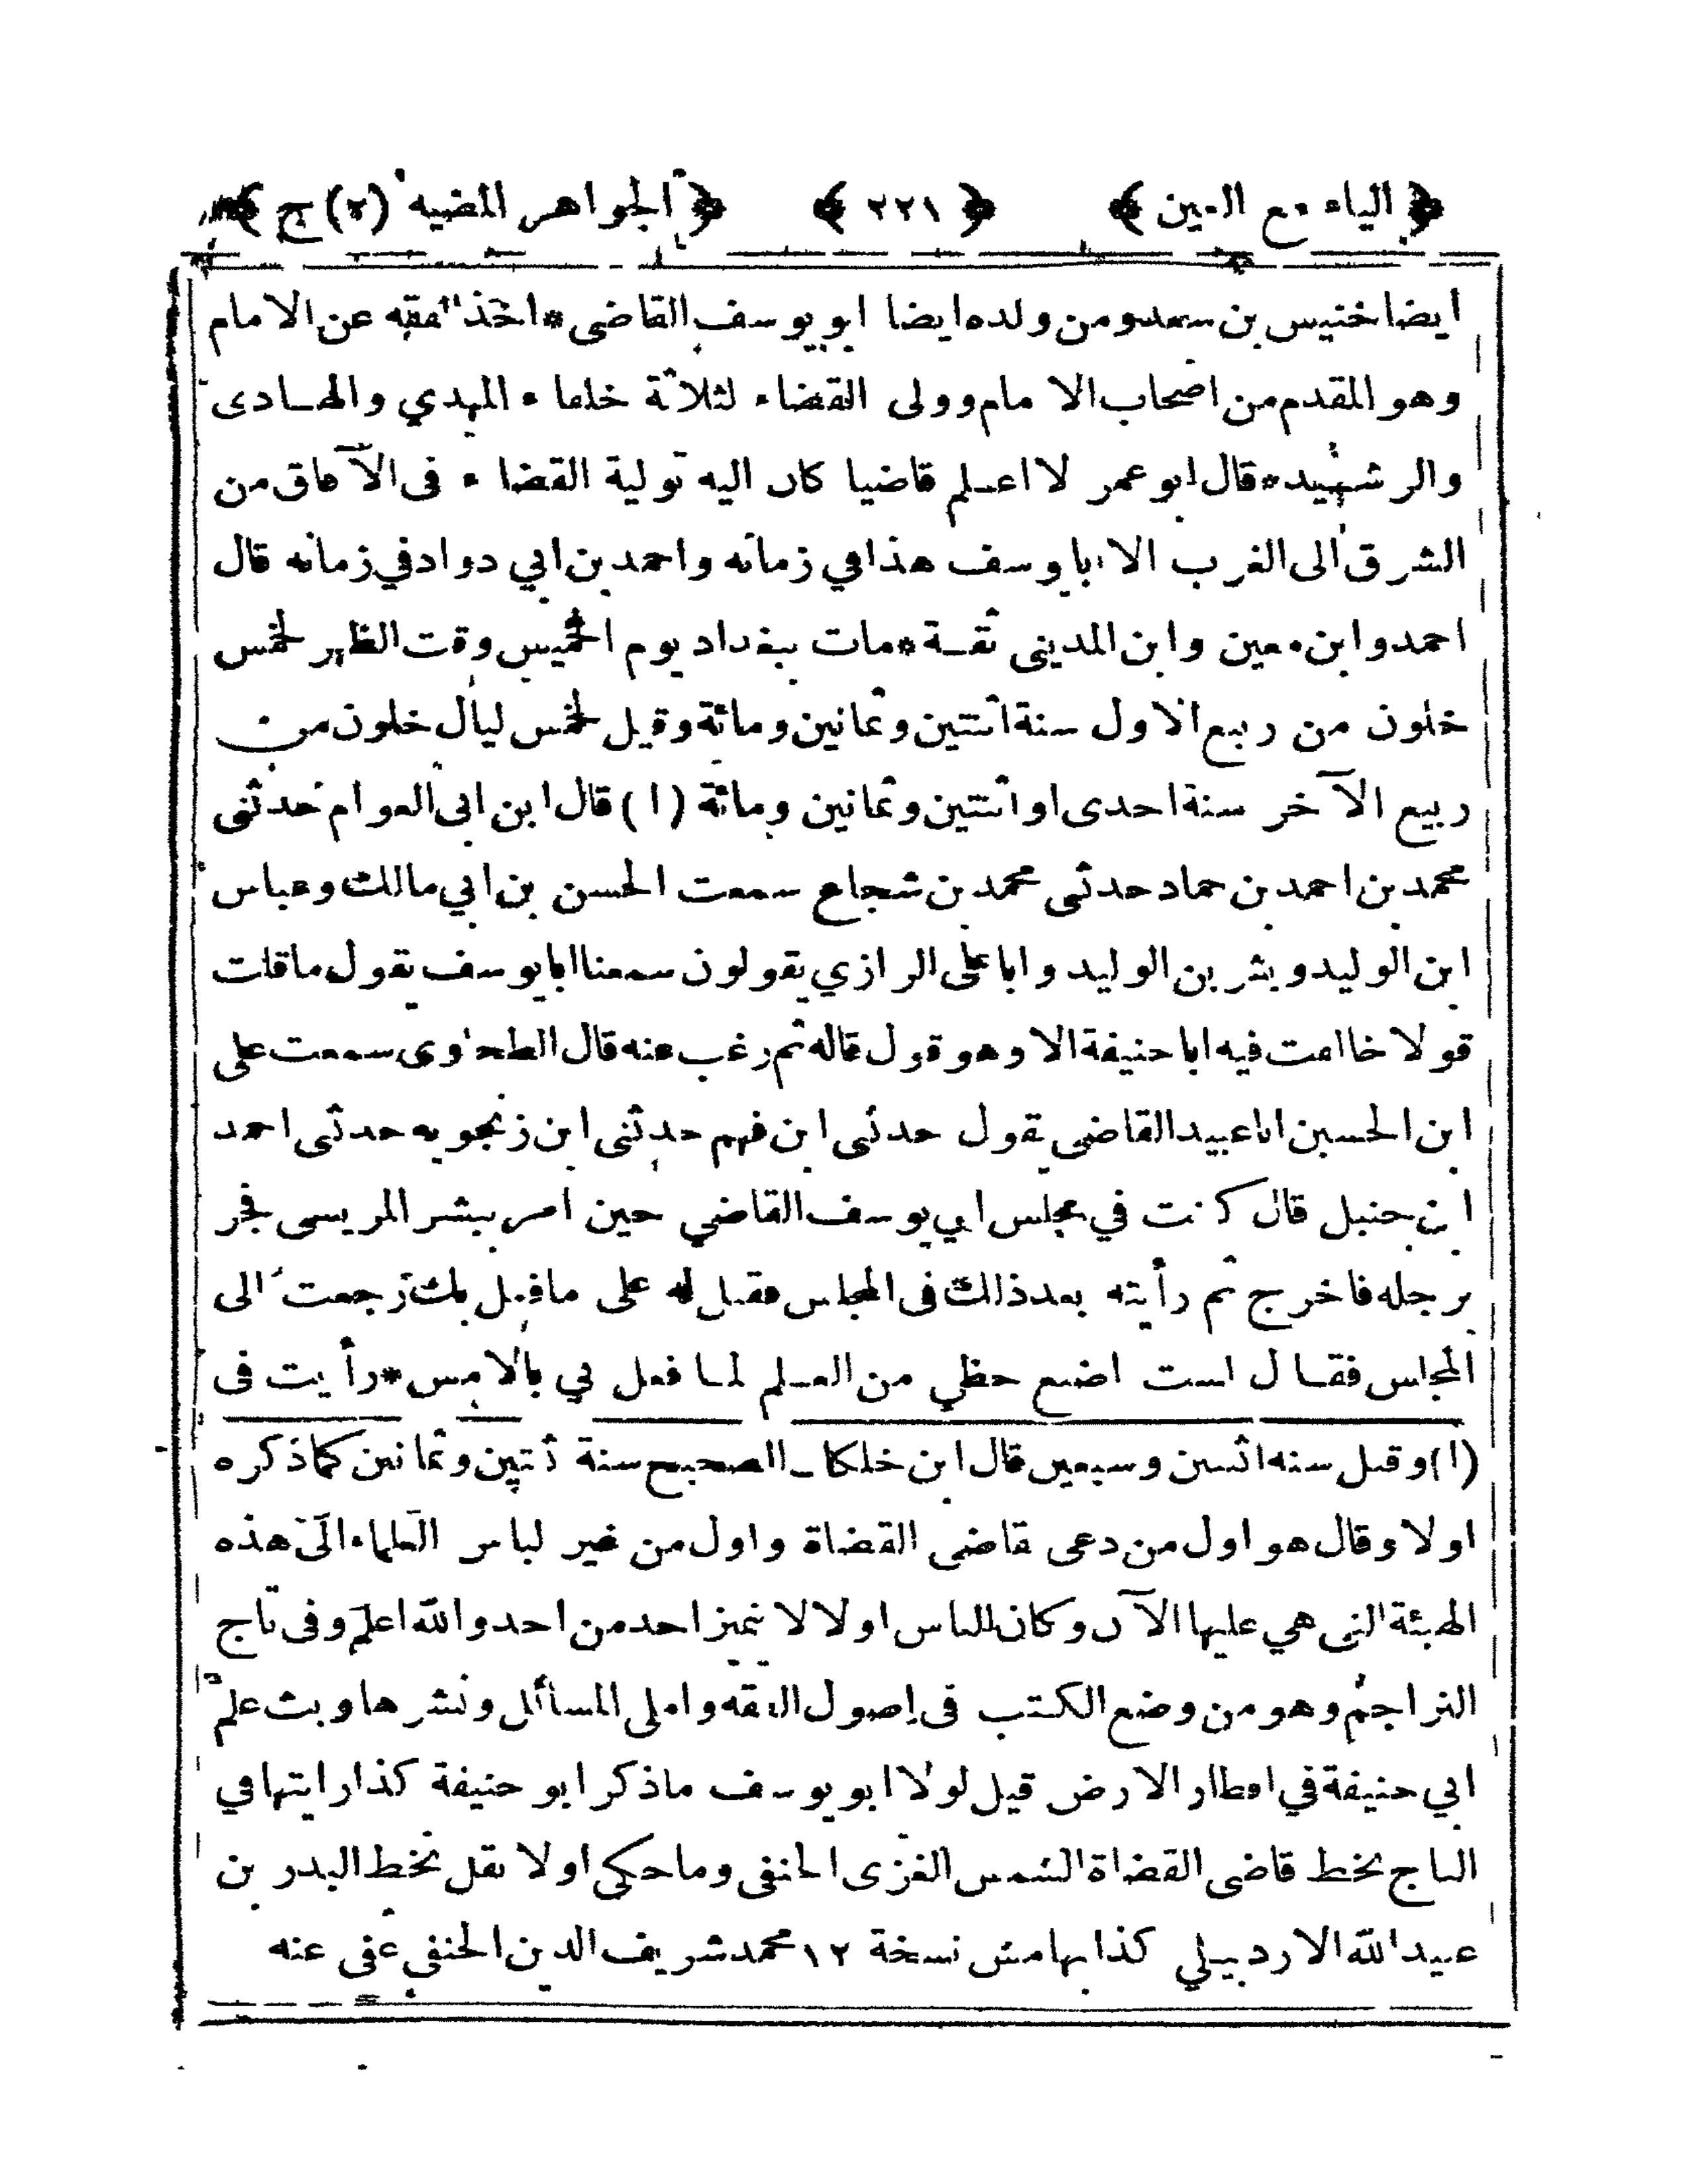 ﴿ الياء مع العين ﴾ ﴿ ٢٢١ ﴾ ﴿ الجواهر المضيه (٢) ج ﴾
ايضا خنيس بن سعد ومن ولده ايضا ابو يوسف القاضى * اخذ الفقه عن الامام
وهو المقدم من اصحاب الامام وولى القضاء لثلاثة خلفاء المهدي والهادى
والرشيد * قال ابو عمر لا اعلم قاضيا كان اليه تولية القضاء فى الآفاق من
الشرق الى الغرب الا ابا يوسف هذا في زمانه واحمد بن ابي دواد في زمانه قال
احمد وابن معين وابن المدينى ثقة * مات ببغداد يوم الخميس وقت الظهر لخمس
خلون من ربيع الاول سنة اثنتين وثمانين ومائة وقيل لخمس ليال خلون من
ربيع الآخر سنة احدى او اثنتين وثمانين ومائة (١) قال ابن ابى العوام حدثنى
محمد بن احمد بن حماد حدثنى محمد بن شجاع سمعت الحسن بن ابي مالك وعباس
ابن الوليد وبشر بن الوليد وابا على الرازي يقولون سمعنا ابا يوسف يقول ما قلت
قولا خالفت فيه ابا حنيفة الا وهو قول قاله ثم رغب عنه قال الطحاوى سمعت على
ابن الحسين ابا عبيد القاضى يقول حدثنى ابن فهم حدثنى ابن زنجويه حدثنى احمد
ابن حنبل قال كنت في مجلس ابي يوسف القاضي حين امر ببشر المريسى فجر
برجله فاخرج ثم رأيته بعد ذلك فى المجلس فقيل له على ما فعل بك رجعت الى
المجلس فقال لست اضيع حظي من العلم لما فعل بي بالامس * رأيت فى
(١) وقيل سنه اثنين وسبعين قال ابن خلكان الصحيح سنة ثنتين وثمانين كما ذكره
اولا وقال هو اول من دعى قاضى القضاة واول من غير لباس العلماء الى هذه
الهيئة التى هي عليها الآن وكان الناس اولا لا يتميز احد من احد والله اعلم وفى تاج
التراجم وهو من وضع الكتب فى اصول الفقه واملى المسائل ونشرها وبث علم
ابي حنيفة في اقطار الارض قيل لولا ابو يوسف ما ذكر ابو حنيفة كذا رايتها في
التاج بخط قاضى القضاة الشمس الغزى الحنفى وما حكى اولا نقل بخط البدر بن
عبيد الله الاردبيلي كذا بهامش نسخة ١٢ محمد شريف الدين الحنفي عفى عنه